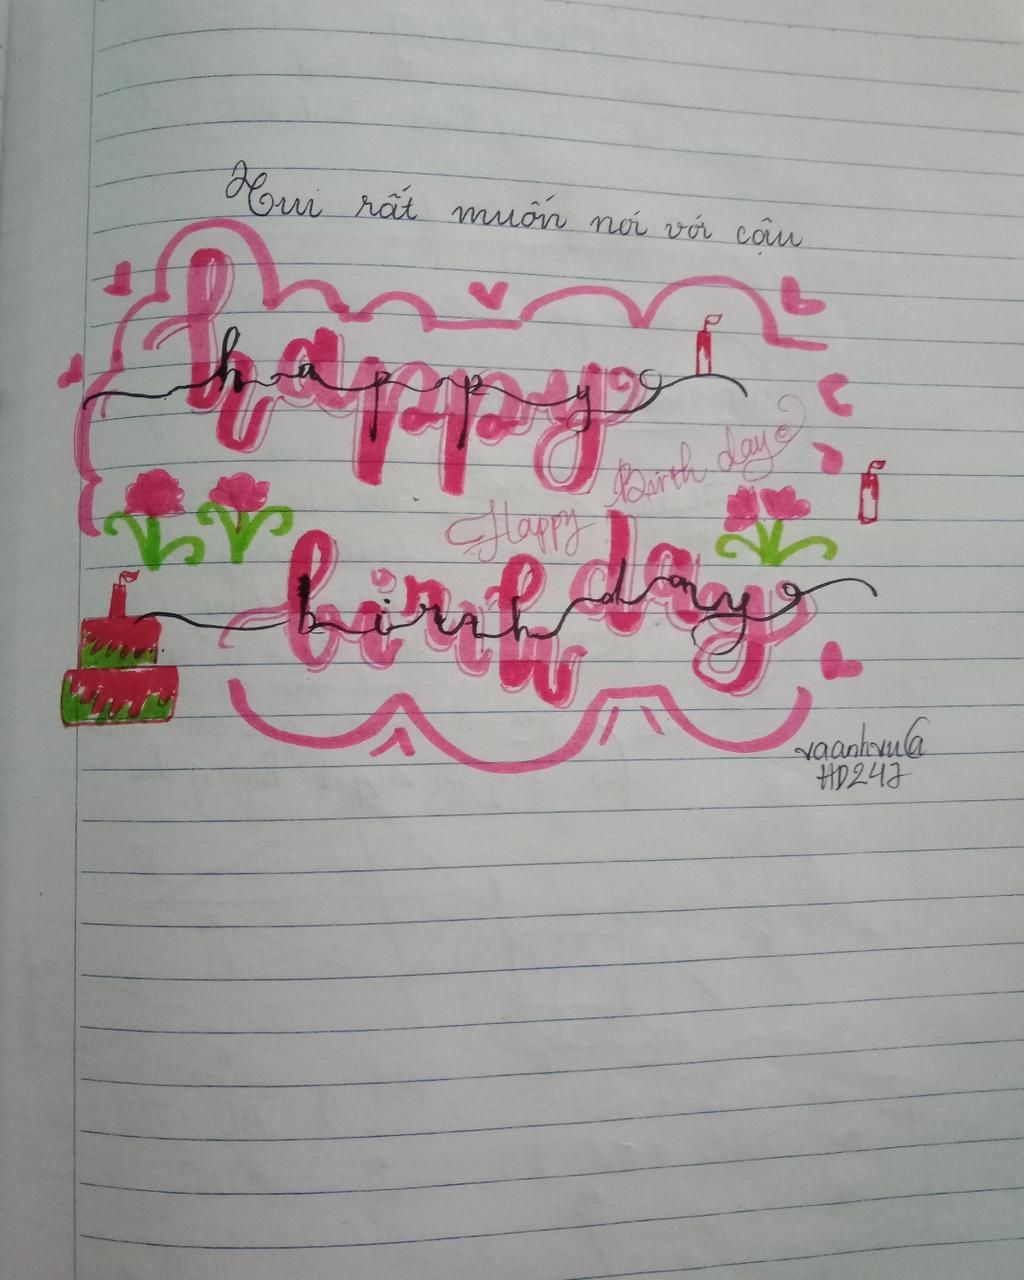 Tui rất muốn nói với cậu
happy
Happy Birth day
birth day
vaanhvu@
HD247